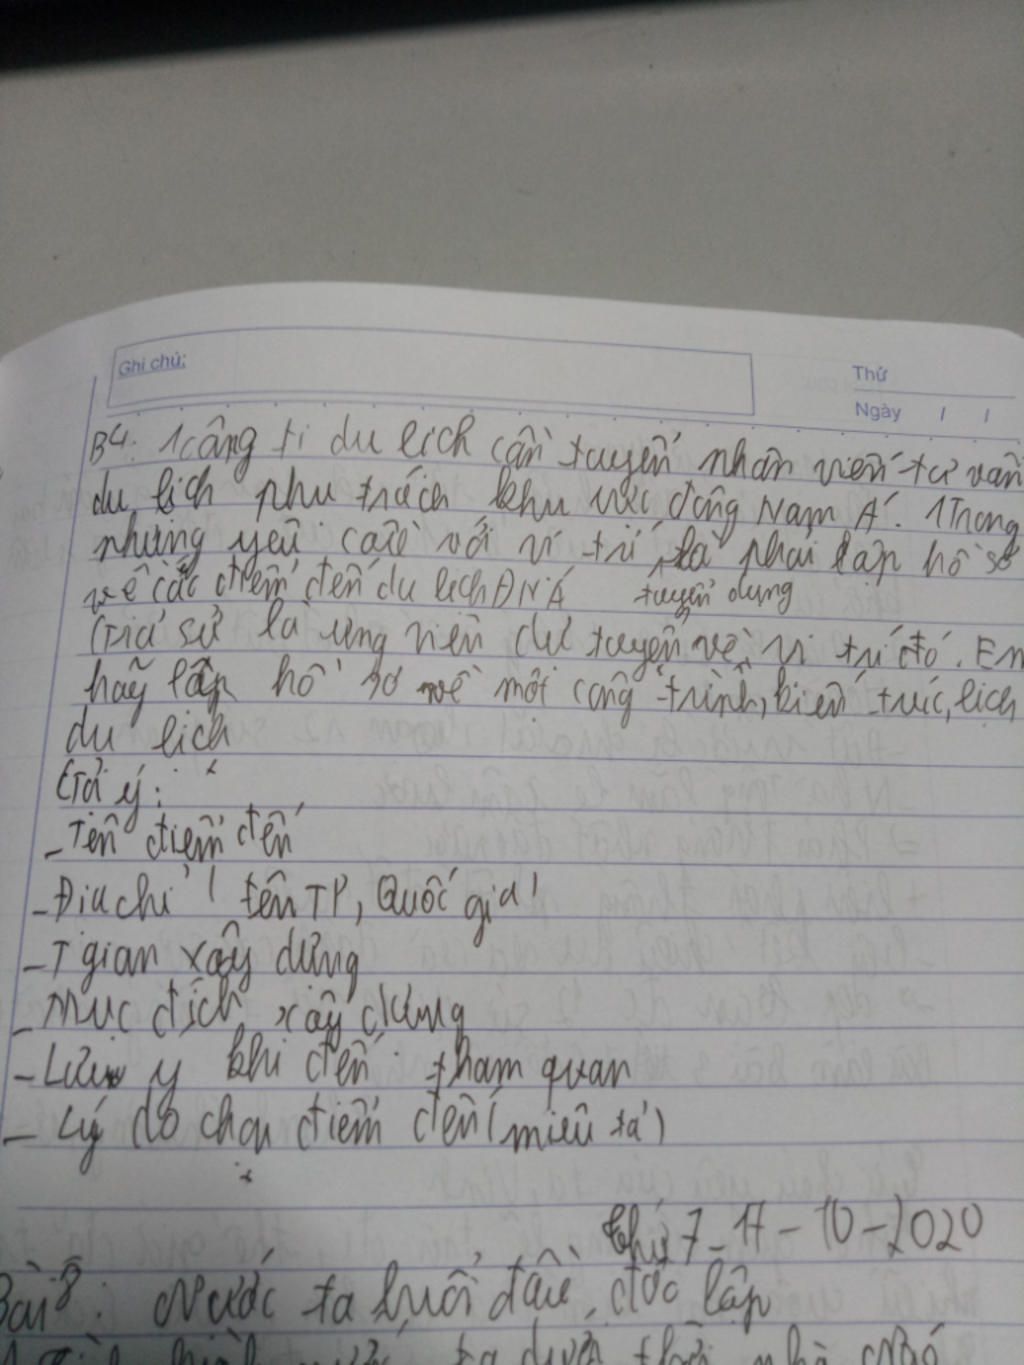 Ghi chú:
Thứ
Ngày / /
B4: 1 công ti du lịch cần tuyển nhân viên tư vấn
du lịch phụ trách khu vực đông Nam Á. 1 trong
những yêu cầu với vị trí là phải lập hồ sơ
tuyển dụng
về các điểm đến du lịch ĐNÁ
Giả sử là ứng viên dự tuyển về vị trí đó. Em
hãy lập hồ sơ về một công trình, kiến trúc, lịch
du lịch
Gợi ý:
- Tên điểm đến
- Địa chỉ ( tên TP, Quốc gia)
- T gian xây dựng
- Mục đích xây dựng
- Lưu ý khi đến tham quan
- Lý do chọn điểm đến (miêu tả)
thứ 7 - 17 - 10 - 2020
Bài 8: Nước ta buổi đầu độc lập
ta dưới thời nhà Ngô